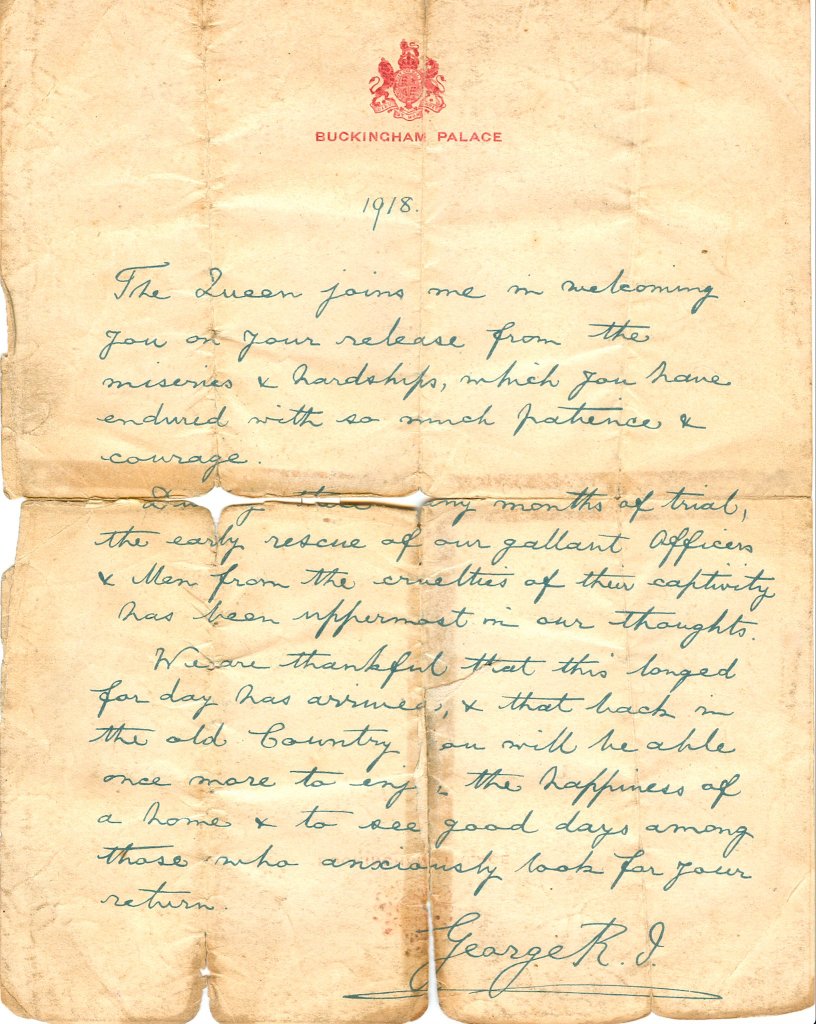 BUCKINGHAM PALACE
1918.
The Queen joins me in welcoming
you on your release from the
miseries & hardships, which you have
endured with so much patience &
courage.
months of trial,
the early rescue of our gallant Officers
& Men from the cruelties of their captivity
has been uppermost in our thoughts.
We are thankful that this longed
for day has arrived, & that back in
the old Country you will be able
once more to enjoy the happiness of
a home & to see good days among
those who anxiously look for your
return.
George R. I.